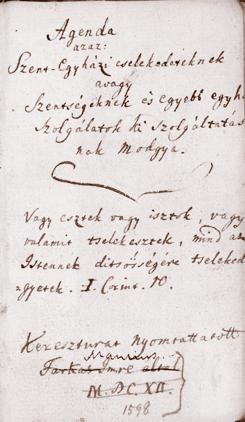 Agenda
azaz:
Szent-Egyházi cselekedeteknek
avagy
Szentségeknek és egyebb egyhá
szolgálatok ki szolgáltatás
nak Modgya.
Vagy esztek vagy isztok, vagy
valamit tselekesztek, mind az
Istennek ditsősségére tseleked
gyetek. I. Corint. 10.
Kereszturat Nyomtattatott
Farkas Imre által
M. DC. XII.
1598